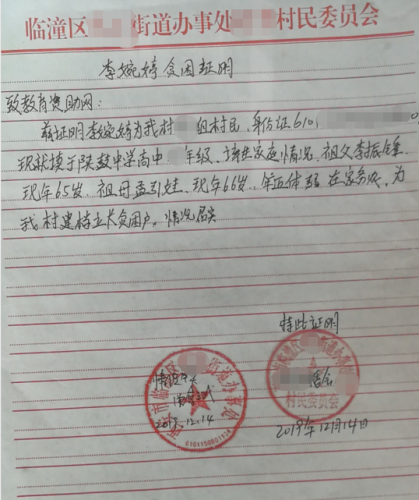 临潼区 街道办事处 村民委员会
李婉婷贫困证明
致教育资助网:
兹证明李婉婷为我村 组村民,身份证610
现就读于陕鼓中学高中 年级,该生家庭情况,祖父李振
现年65岁,祖母孟引娃,现年66岁,年迈体弱在家务农,为
我村建档立卡贫困户。情况属实
特此证明
情况属实
2019.12.14
街道办事处
6101150001124
村民委员会
2019年12月14日